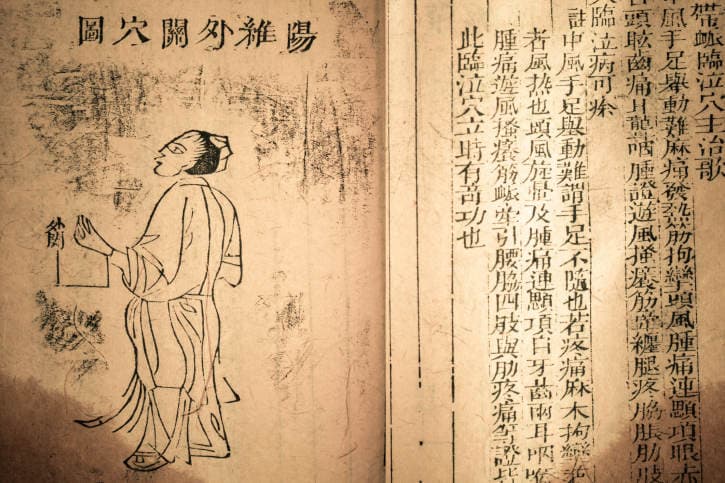 帶脈臨泣穴主治歌
中風手足舉動難麻痛發熱筋拘攣頭風腫痛連顋項眼赤
頭眩齒痛耳聾咽腫證遊風搔癢筋牽纏腿疼脇脹肋肢
臨泣病可痊
註中風手足舉動難謂手足不隨也若疼痛麻木拘攣
者風熱也頭風旋暈及腫痛連顋項目牙齒兩耳咽喉
腫痛遊風搔癢筋脈牽引腰脇四肢與肋疼痛等證此
此臨泣穴立時有奇功也
陽維外關穴圖
外關